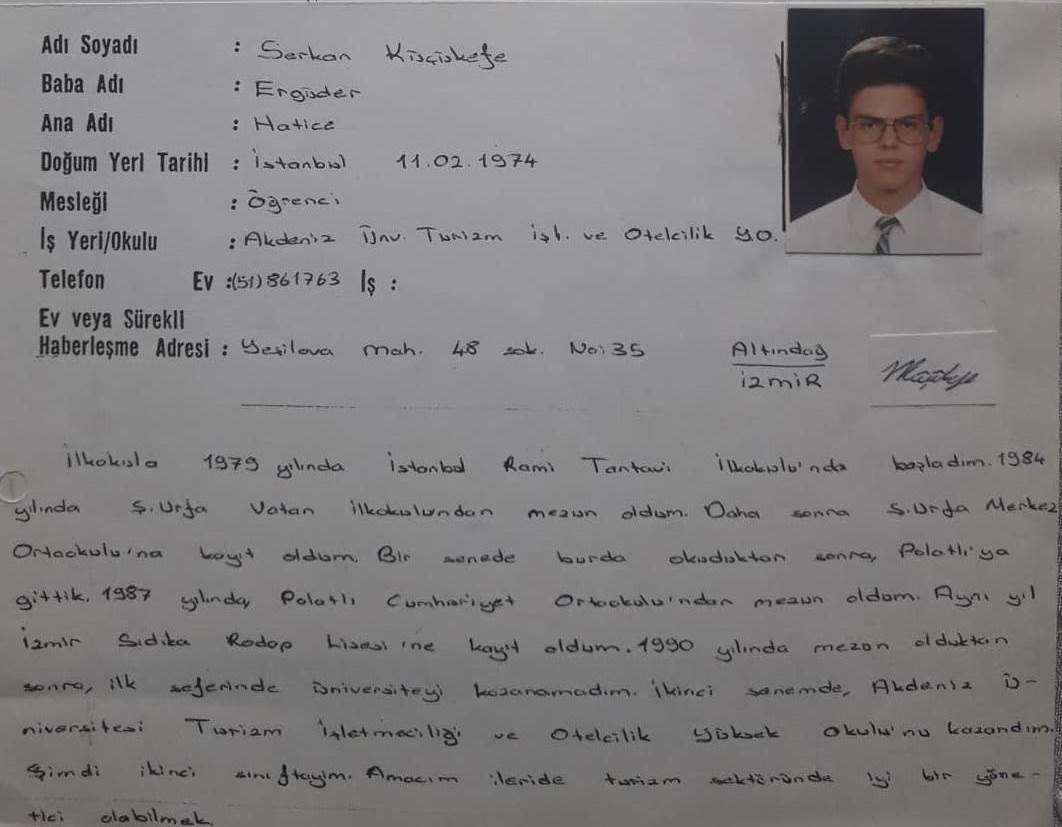 Adı Soyadı : Serkan Küçükefe
Baba Adı : Ergüder
Ana Adı : Hatice
Doğum Yeri Tarihi : İstanbul 11.02.1974
Mesleği : Öğrenci
İş Yeri/Okulu : Akdeniz Ünv. Turizm işl. ve Otelcilik Y.O.
Telefon Ev :(51)861763 İş :
Ev veya Sürekli
Haberleşme Adresi : Yeşilova mah. 48 sok. No:35 Altındağ
İZMİR
İlkokula 1979 yılında İstanbul Rami Tantavi İlkokulu'nda başladım. 1984
yılında Ş.Urfa Vatan ilkokulundan mezun oldum. Daha sonra Ş.Urfa Merkez
Ortaokulu'na kayıt oldum. Bir senede burda okuduktan sonra, Polatlı'ya
gittik. 1987 yılında, Polatlı Cumhuriyet Ortaokulu'ndan mezun oldum. Aynı yıl
İzmir Sıdıka Rodop Lisesi'ne kayıt oldum. 1990 yılında mezun olduktan
sonra, ilk seferinde üniversiteyi kazanamadım. İkinci senemde, Akdeniz ü-
niversitesi Turizm İşletmeciliği ve Otelcilik Yüksek Okulu'nu kazandım.
Şimdi ikinci sınıftayım. Amacım ileride turizm sektöründe iyi bir yöne-
tici olabilmek